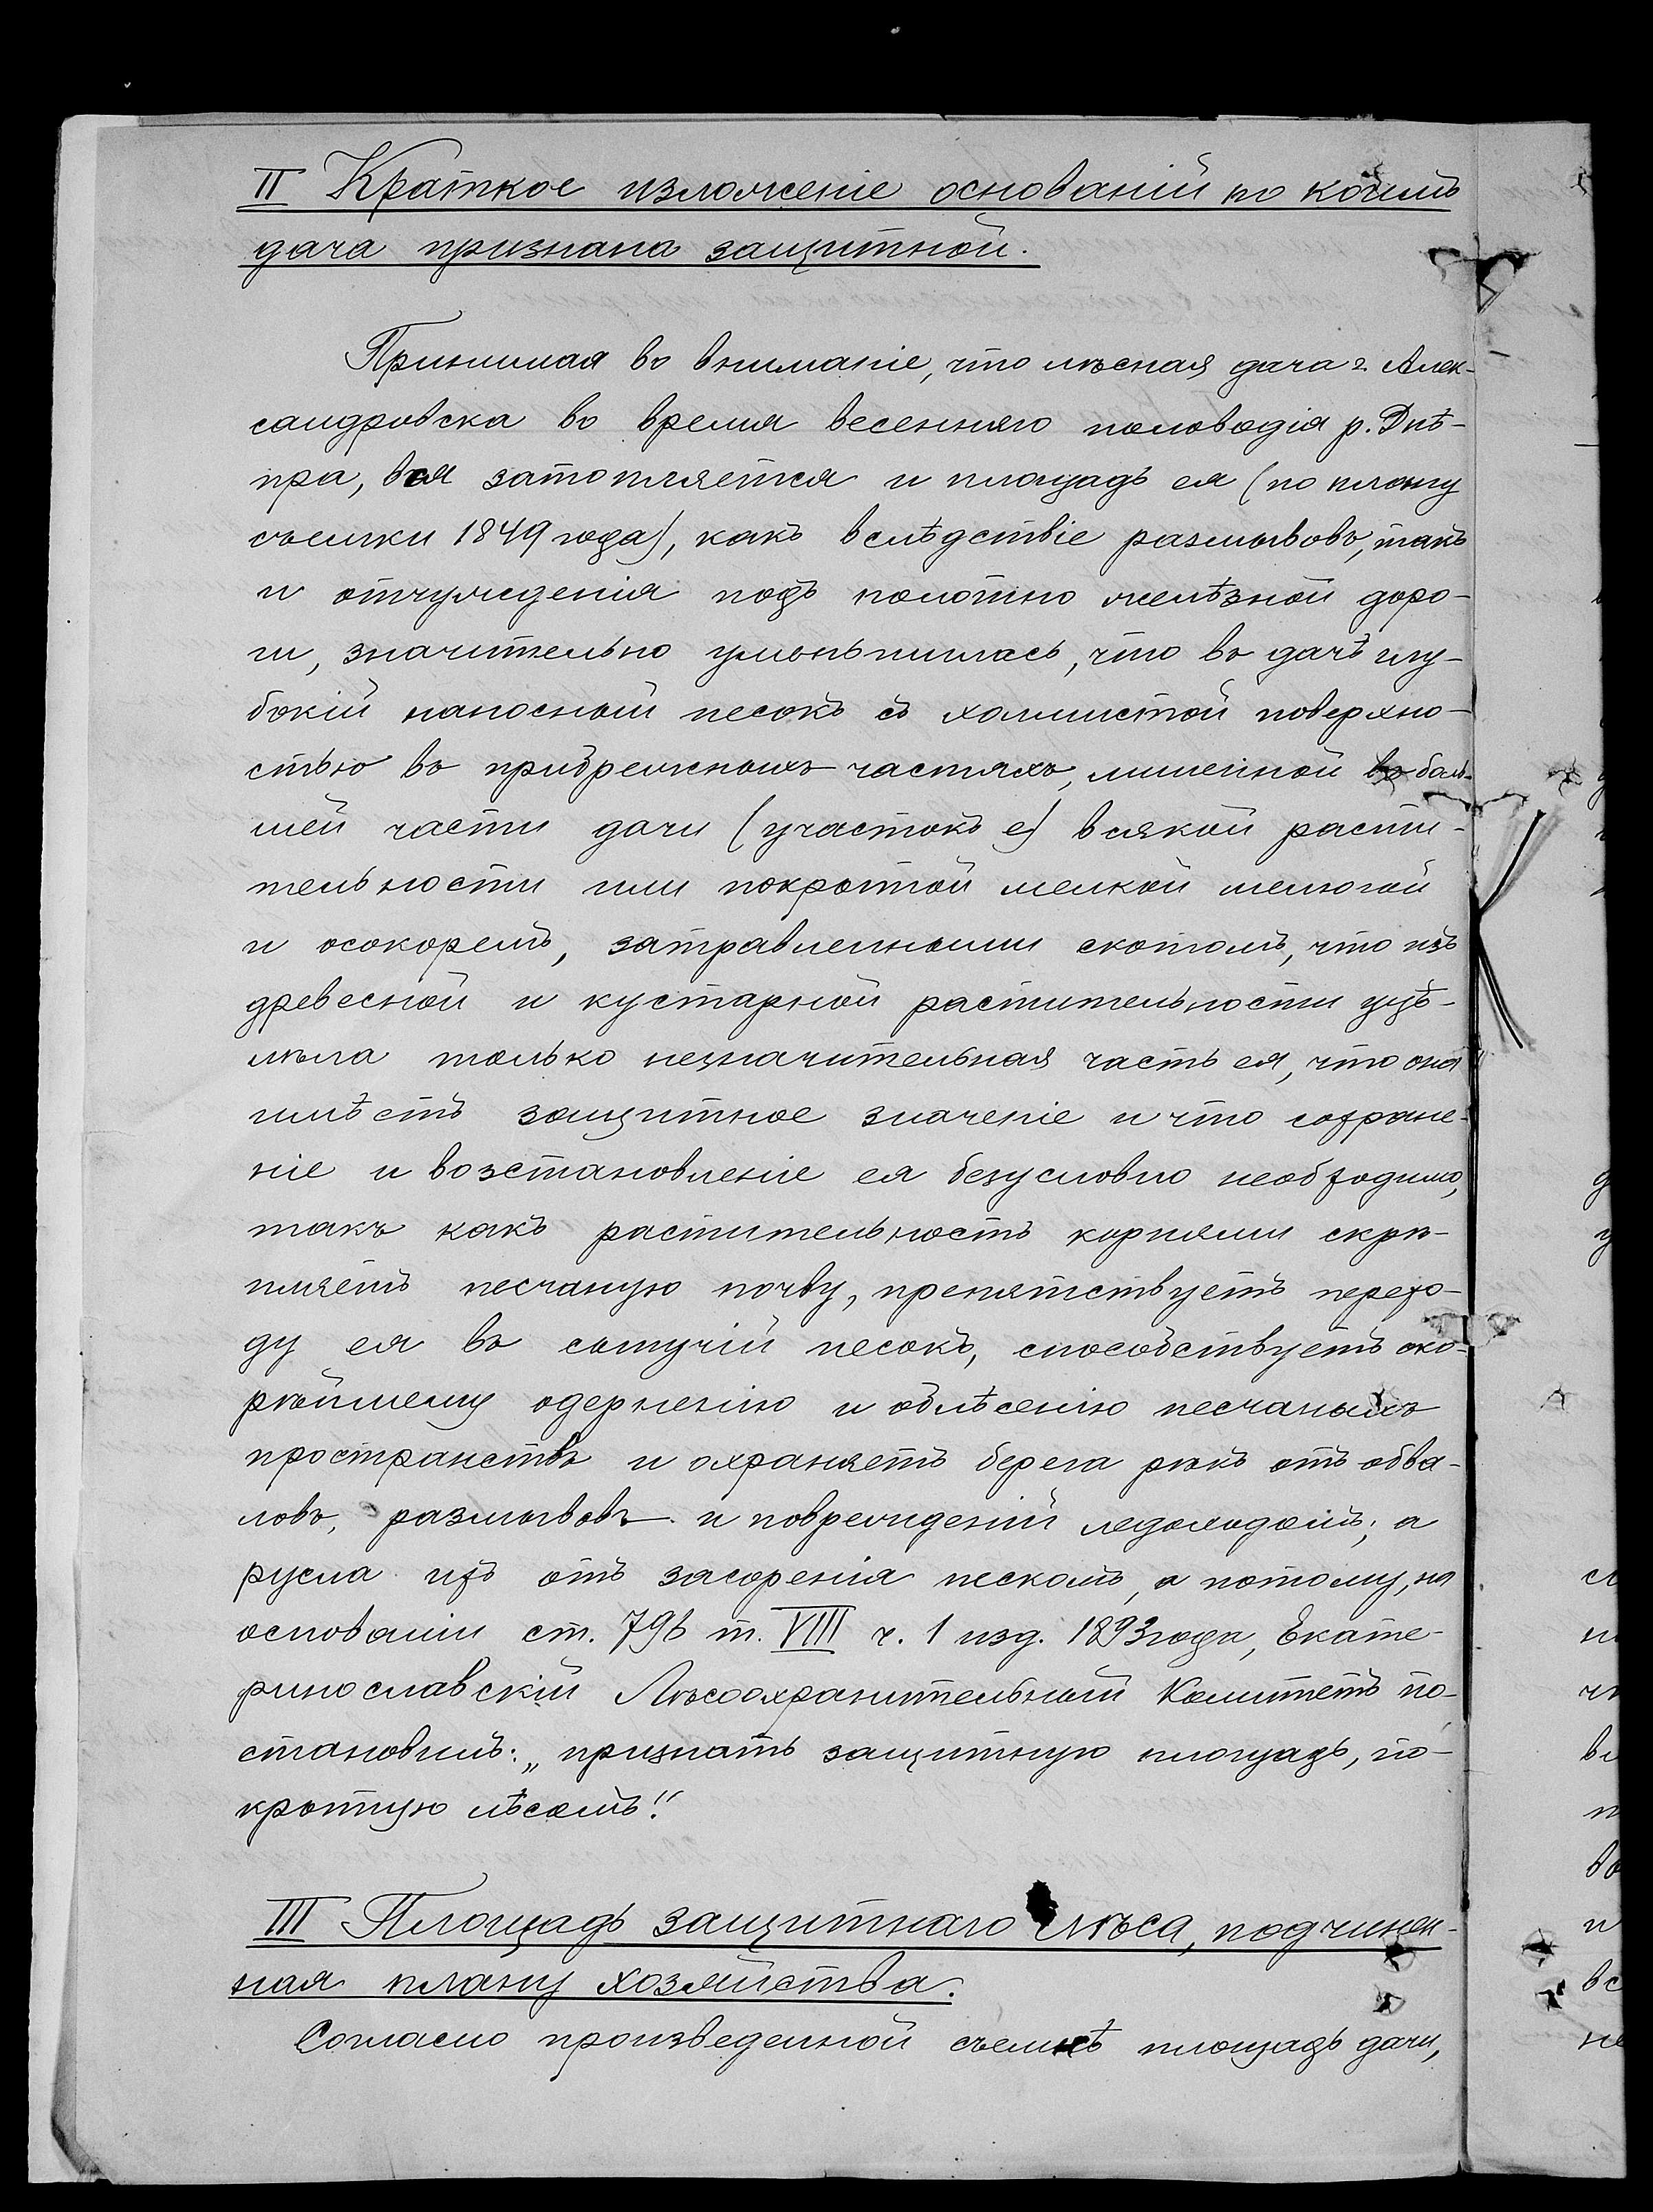 II Краткое изложеніе основаній по коимъ
дача признана защитной.
Принимая во вниманіе, что лѣсная дача г. Алек-
сандровска во время весенняго половодія р. Днѣ-
пра, вся затопляется и площадь ея (по плану
съемки 1849 года), какъ вслѣдствіе размывовъ, такъ
и отчужденія подъ полотно желѣзной доро-
ги, значительно уменьшилась, что въ дачѣ глу-
бокій наносный песокъ съ холмистой поверхно-
стью въ прибрежныхъ частяхъ, лишенной въ боль-
шей части дачи (участокъ е) всякой расти-
тельности или покрытой мелкой шелюгой
и осокоремъ, затравленными скотомъ, что изъ
древесной и кустарной растительности уцѣ-
лѣла только незначительная часть ея, что она
имѣетъ защитное значеніе и что сохране-
ніе и возстановленіе ея безусловно необходимо,
такъ какъ растительность корнями скрѣ-
пляетъ песчаную почву, препятствуетъ перехо-
ду ея въ сыпучій песокъ, способствуетъ ско-
рѣйшему одерненію и облѣсенію песчаныхъ
пространствъ и охраняетъ берега рѣкъ отъ обва-
ловъ, размывовъ и поврежденій ледоходомъ; а
русла ихъ отъ засоренія пескомъ, а потому, на
основаніи ст. 796 т. VIII ч. 1 изд. 1893 года, Екате-
ринославскій Лѣсоохранительный Комитетъ по-
становилъ: „признать защитную площадь, по-
крытую лѣсомъ".
III Площадь защитнаго лѣса, подчинен-
ная плану хозяйства.
Согласно произведенной съемкѣ площадь дачи,